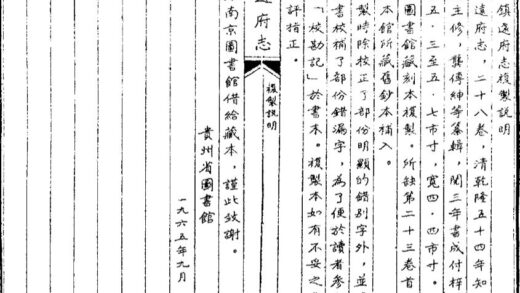 鎮遠府志複製説明
遠府志，二十八卷，清乾隆五十四年知
主修，龔傳紳等纂輯，閱三年書成付梓
五．三至五．七市寸，寬四．四市寸。
圖書館藏刻本複製。所缺第二十三卷首
本館所藏舊鈔本補入。
製時除校正了部份明顯的錯別字外，並
書校補了部份錯漏字，為了便於讀者參
「校勘記」於書本。複製本如有不妥之
評指正。
府志
複製説明
南京圖書館借給藏本，謹此致謝。
貴州省圖書館
一九六五年九月